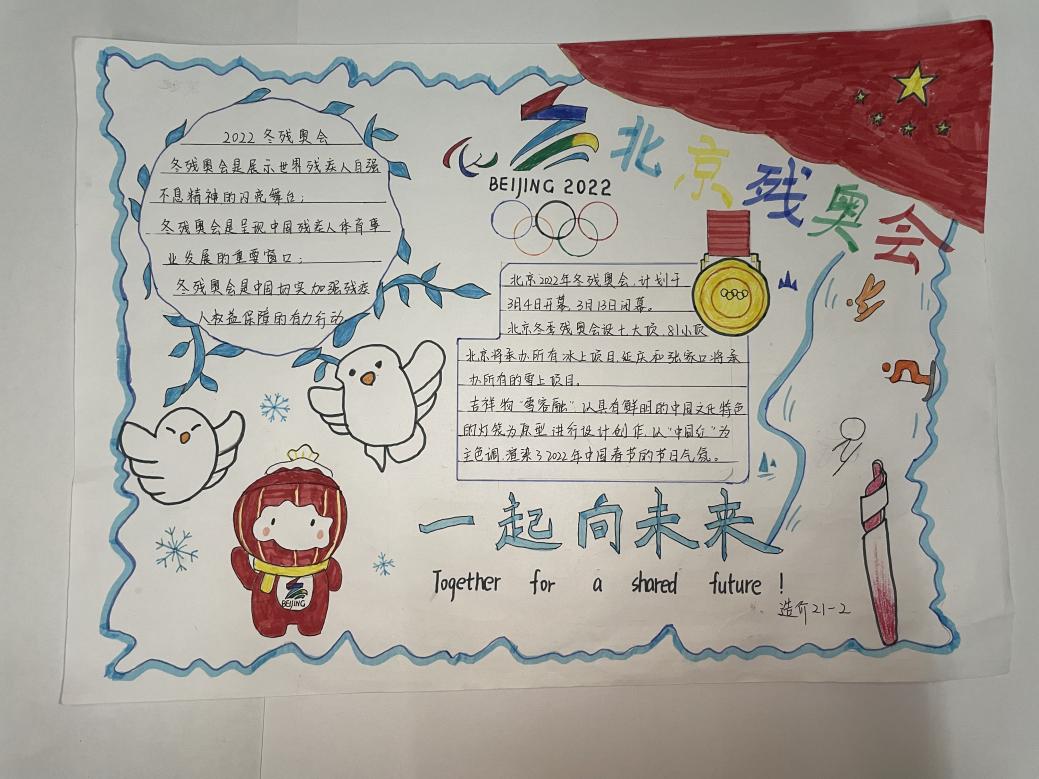 2022 冬残奥会
冬残奥会是展示世界残疾人自强
不息精神的闪亮舞台；
冬残奥会是呈现中国残疾人体育事
业发展的重要窗口；
冬残奥会是中国切实加强残疾
人权益保障的有力行动
BEIJING 2022
北京残奥会
北京2022年冬残奥会，计划于
3月4日开幕，3月13日闭幕。
北京冬季残奥会设七大项，81小项
北京将承办所有冰上项目，延庆和张家口将承
办所有的雪上项目。
吉祥物“雪容融”，以具有鲜明的中国文化特色
的灯笼为原型进行设计创作，以“中国红”为
主色调，渲染了2022年中国春节的节日气氛。
一起向未来
Together for a shared future !
造价21-2
BEIJING